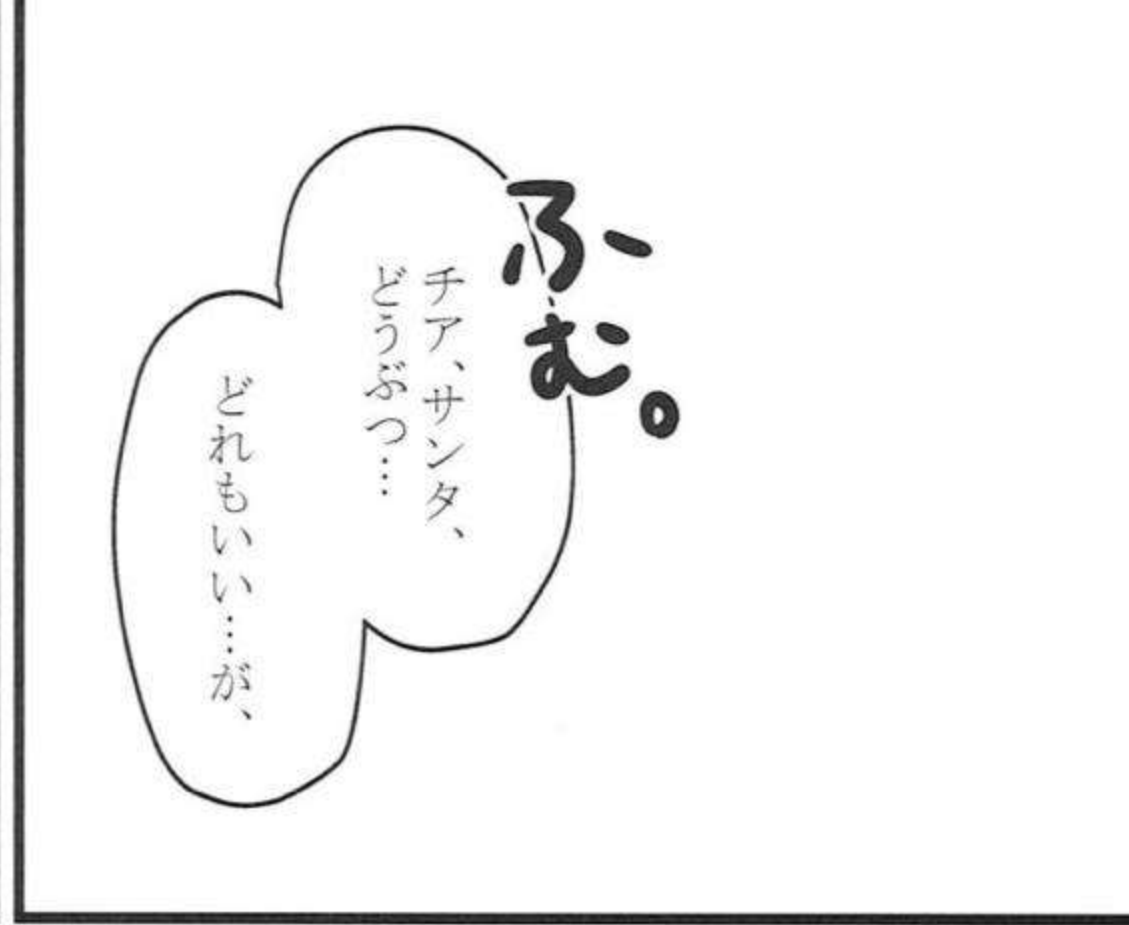 ふむ。
チア、サンタ、
どうぶつ…
どれもいい…が、